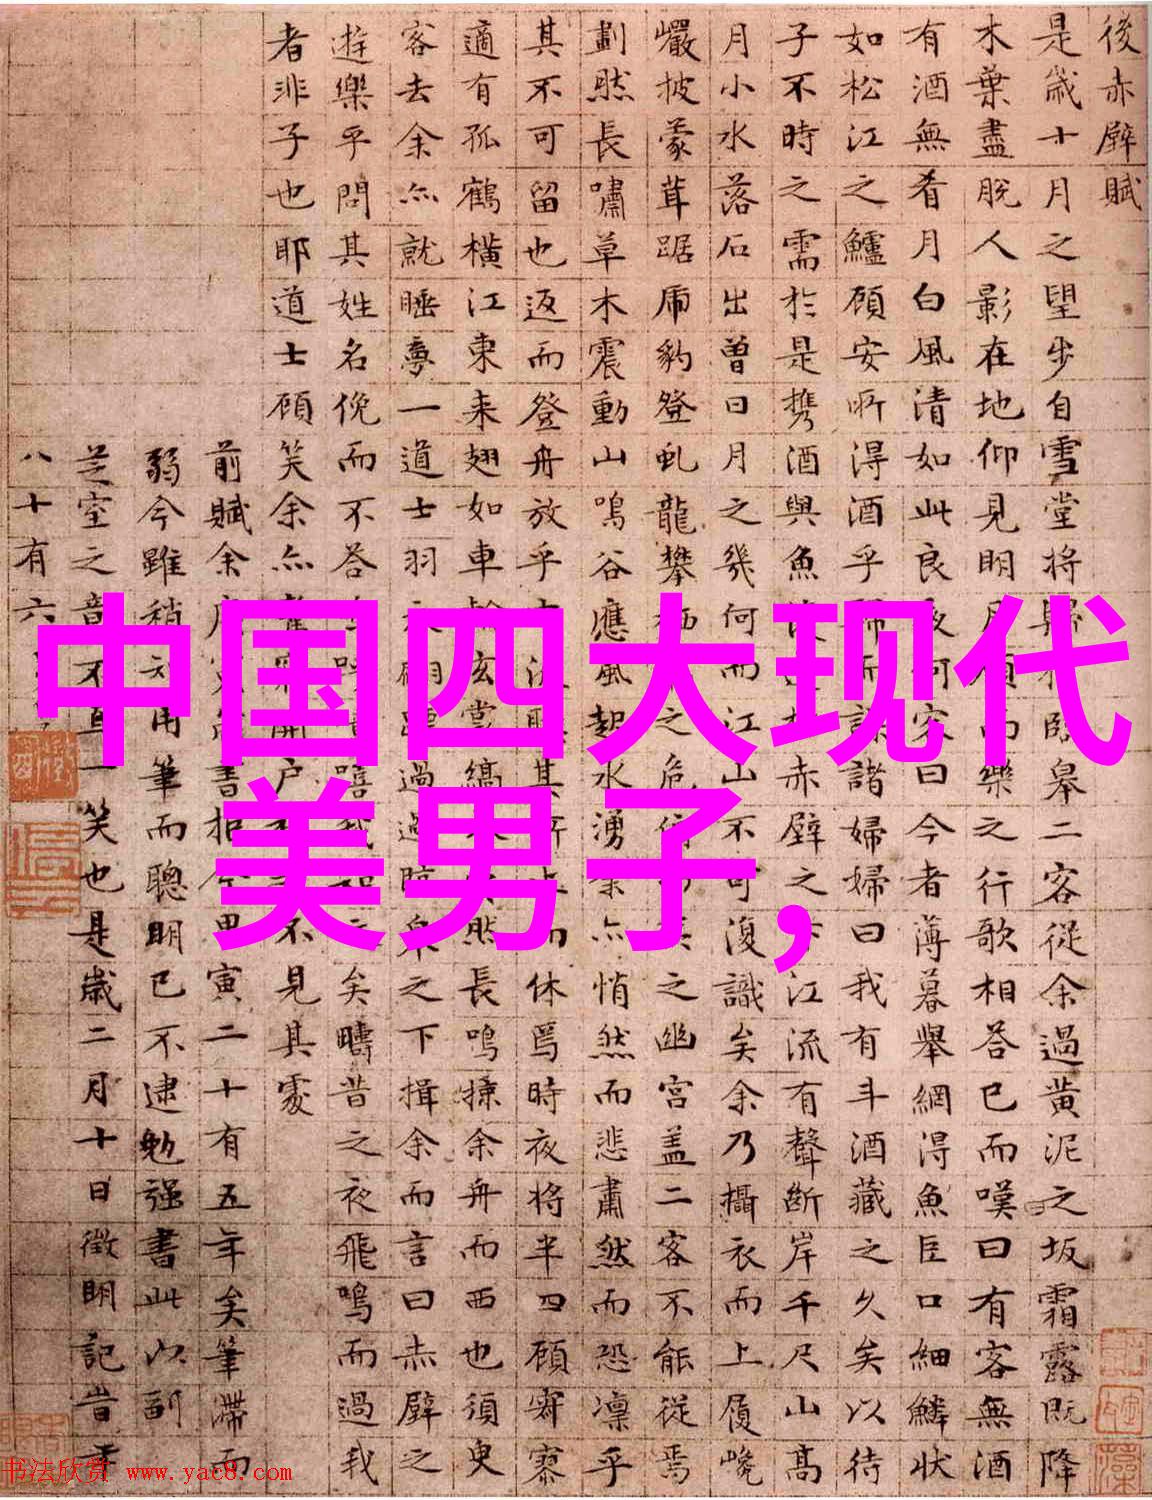 後赤壁賦
是歲十月之望步自雪堂將歸臨皋二客從余過黃泥之坂霜露既降
木葉盡脫人影在地仰見明月顧而樂之行歌相答已而嘆曰有客無酒
有酒無肴月白風清如此良夜何客曰今者薄暮舉網得魚巨口細鱗狀
如松江之鱸顧安所得酒乎歸而謀諸婦婦曰我有斗酒藏之久矣以待
子不時之需於是攜酒與魚赤壁之江流有聲斷岸千尺山高
月小水落石出曾日月之幾何而江山不可復識矣余乃攝衣而上履巉
巖披蒙茸踞虎豹登虬龍攀栖之危之幽宮蓋二客不能從焉
劃然長嘯草木震動山鳴谷應風起水湧余亦悄然而悲肅然而恐凜乎
其不可留也返而登舟放乎流其而休焉時夜將半四顧寂寥
適有孤鶴橫江東來翅如車玄裳縞然長鳴掠余舟而西也須臾
客去余亦就睡夢一道士羽衣翩躚過臨皋之下揖余而言曰赤壁之
遊樂乎問其姓名俛而不答呼嘻我矣疇昔之夜飛鳴而過我
者非子也耶道士顧笑余亦開戶不見其處
前賦余書寅二十有五年矣筆滯而
弱今雖稍知用筆而聰明已不逮勉強書此以副
芝室之意不直一笑也是歲二月十日徵明記時年
八十有六
中国四大现代
美男子，
书法欣赏 www.yac8.com